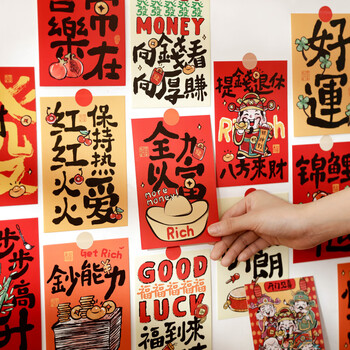 常在
喜樂
MONEY
向錢看
向厚賺
提錢退休
Rich
八方来财
好運
保持热爱
红红火火
全力
以富
more money
Rich
錦鯉
步步
Get Rich
鈔能力
GOOD
福福福福福
LUCK
福到來